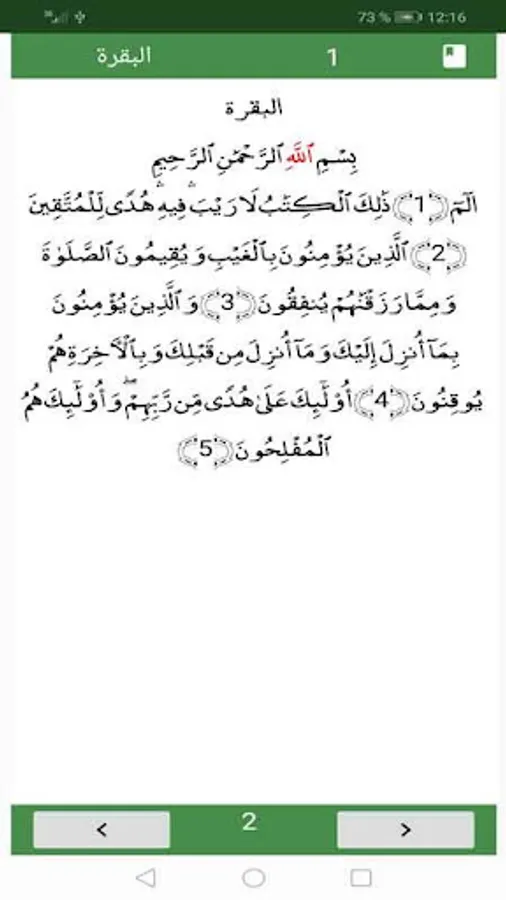 73 % 12:16
البقرة 1
البقرة
بِسْمِ ٱللَّهِ ٱلرَّحْمَٰنِ ٱلرَّحِيمِ
الٓمٓ ﴿1﴾ ذَٰلِكَ ٱلْكِتَٰبُ لَا رَيْبَ ۛ فِيهِ ۛ هُدًى لِّلْمُتَّقِينَ
﴿2﴾ ٱلَّذِينَ يُؤْمِنُونَ بِٱلْغَيْبِ وَيُقِيمُونَ ٱلصَّلَوٰةَ
وَمِمَّا رَزَقْنَٰهُمْ يُنفِقُونَ ﴿3﴾ وَٱلَّذِينَ يُؤْمِنُونَ
بِمَآ أُنزِلَ إِلَيْكَ وَمَآ أُنزِلَ مِن قَبْلِكَ وَبِٱلْءَاخِرَةِ هُمْ
يُوقِنُونَ ﴿4﴾ أُو۟لَٰٓئِكَ عَلَىٰ هُدًى مِّن رَّبِّهِمْ ۖ وَأُو۟لَٰٓئِكَ هُمُ
ٱلْمُفْلِحُونَ ﴿5﴾
< 2 >